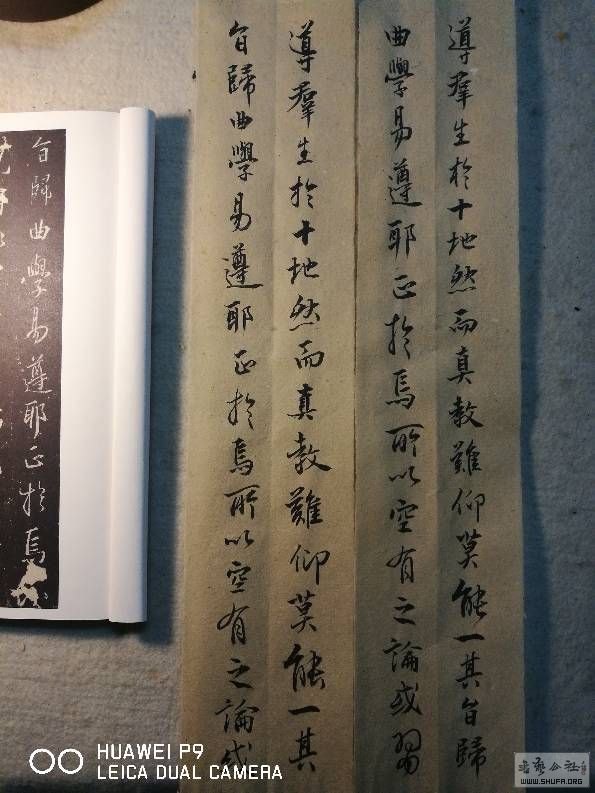 導群生於十地然而真教難仰莫能一其旨歸
曲學易遵耶正於焉所以空有之論或習
導群生於十地然而真教難仰莫能一其
旨歸曲學易遵耶正於焉所以空有之論或
旨歸曲學易遵耶正於焉
HUAWEI P9
LEICA DUAL CAMERA
书艺公社
WWW.SHUFA.ORG